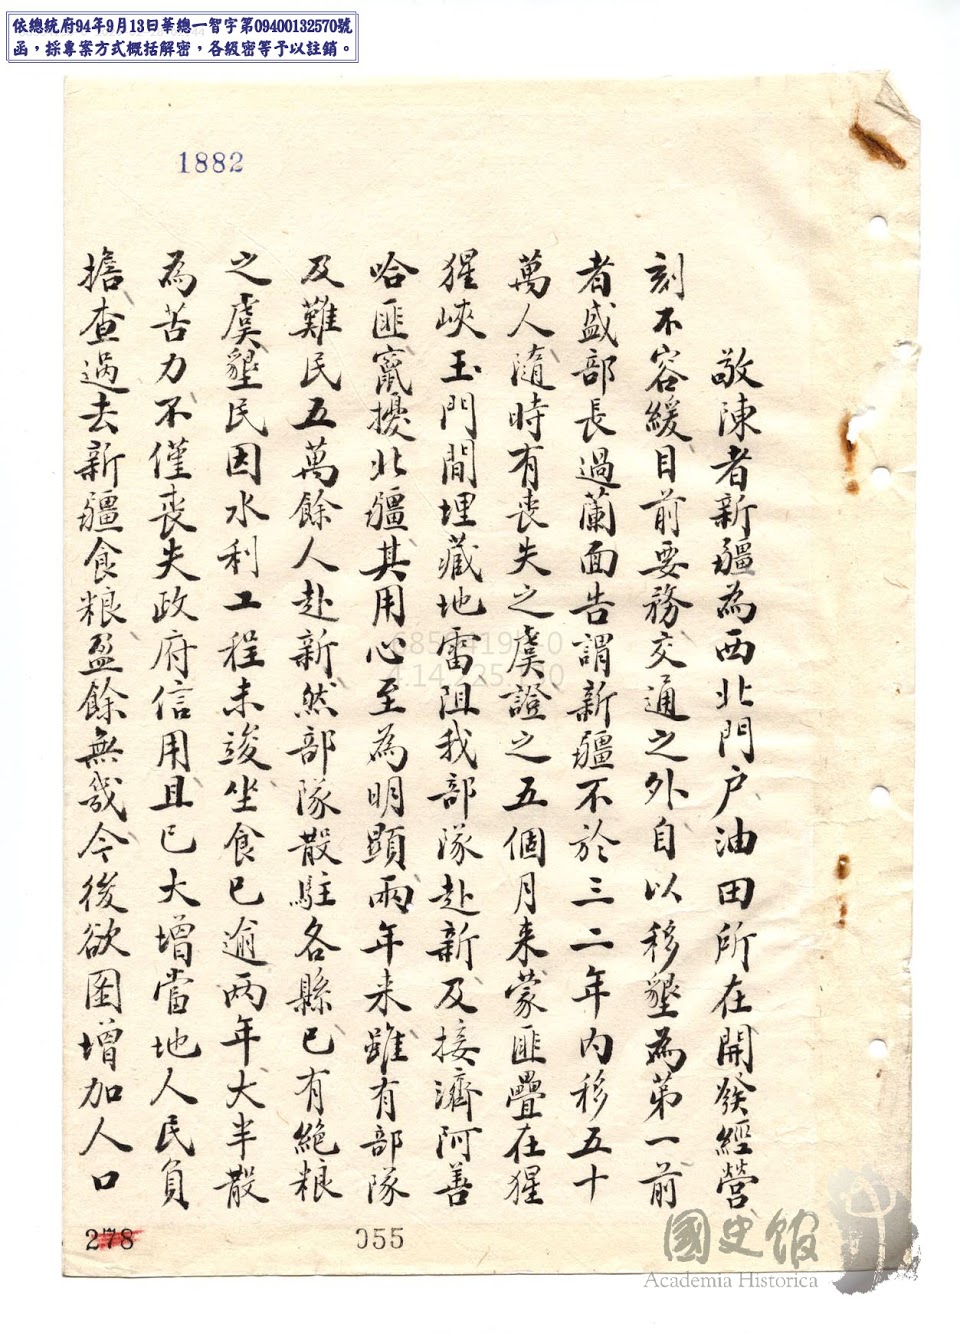 依總統府94年9月13日華總一智字第09400132570號
函，採專案方式概括解密，各級密等予以註銷。
1882
敬陳者新疆為西北門户油田所在開發經營
刻不容緩目前要務交通之外自以移墾為第一前
者盛部長過蘭面告謂新疆不於三二年內移五十
萬人隨時有喪失之虞證之五個月來蒙匪疊在猩
猩峽玉門間埋藏地雷阻我部隊赴新及接濟阿善
哈匪竄擾北疆其用心至為明顯兩年來雖有部隊
及難民五萬餘人赴新然部隊散駐各縣已有絕粮
之虞墾民因水利工程未竣坐食已逾两年大半散
為苦力不僅喪失政府信用且已大增當地人民負
擔查過去新疆食粮盈餘無幾今後欲圖增加人口
278
055
國史館
Academia Historica